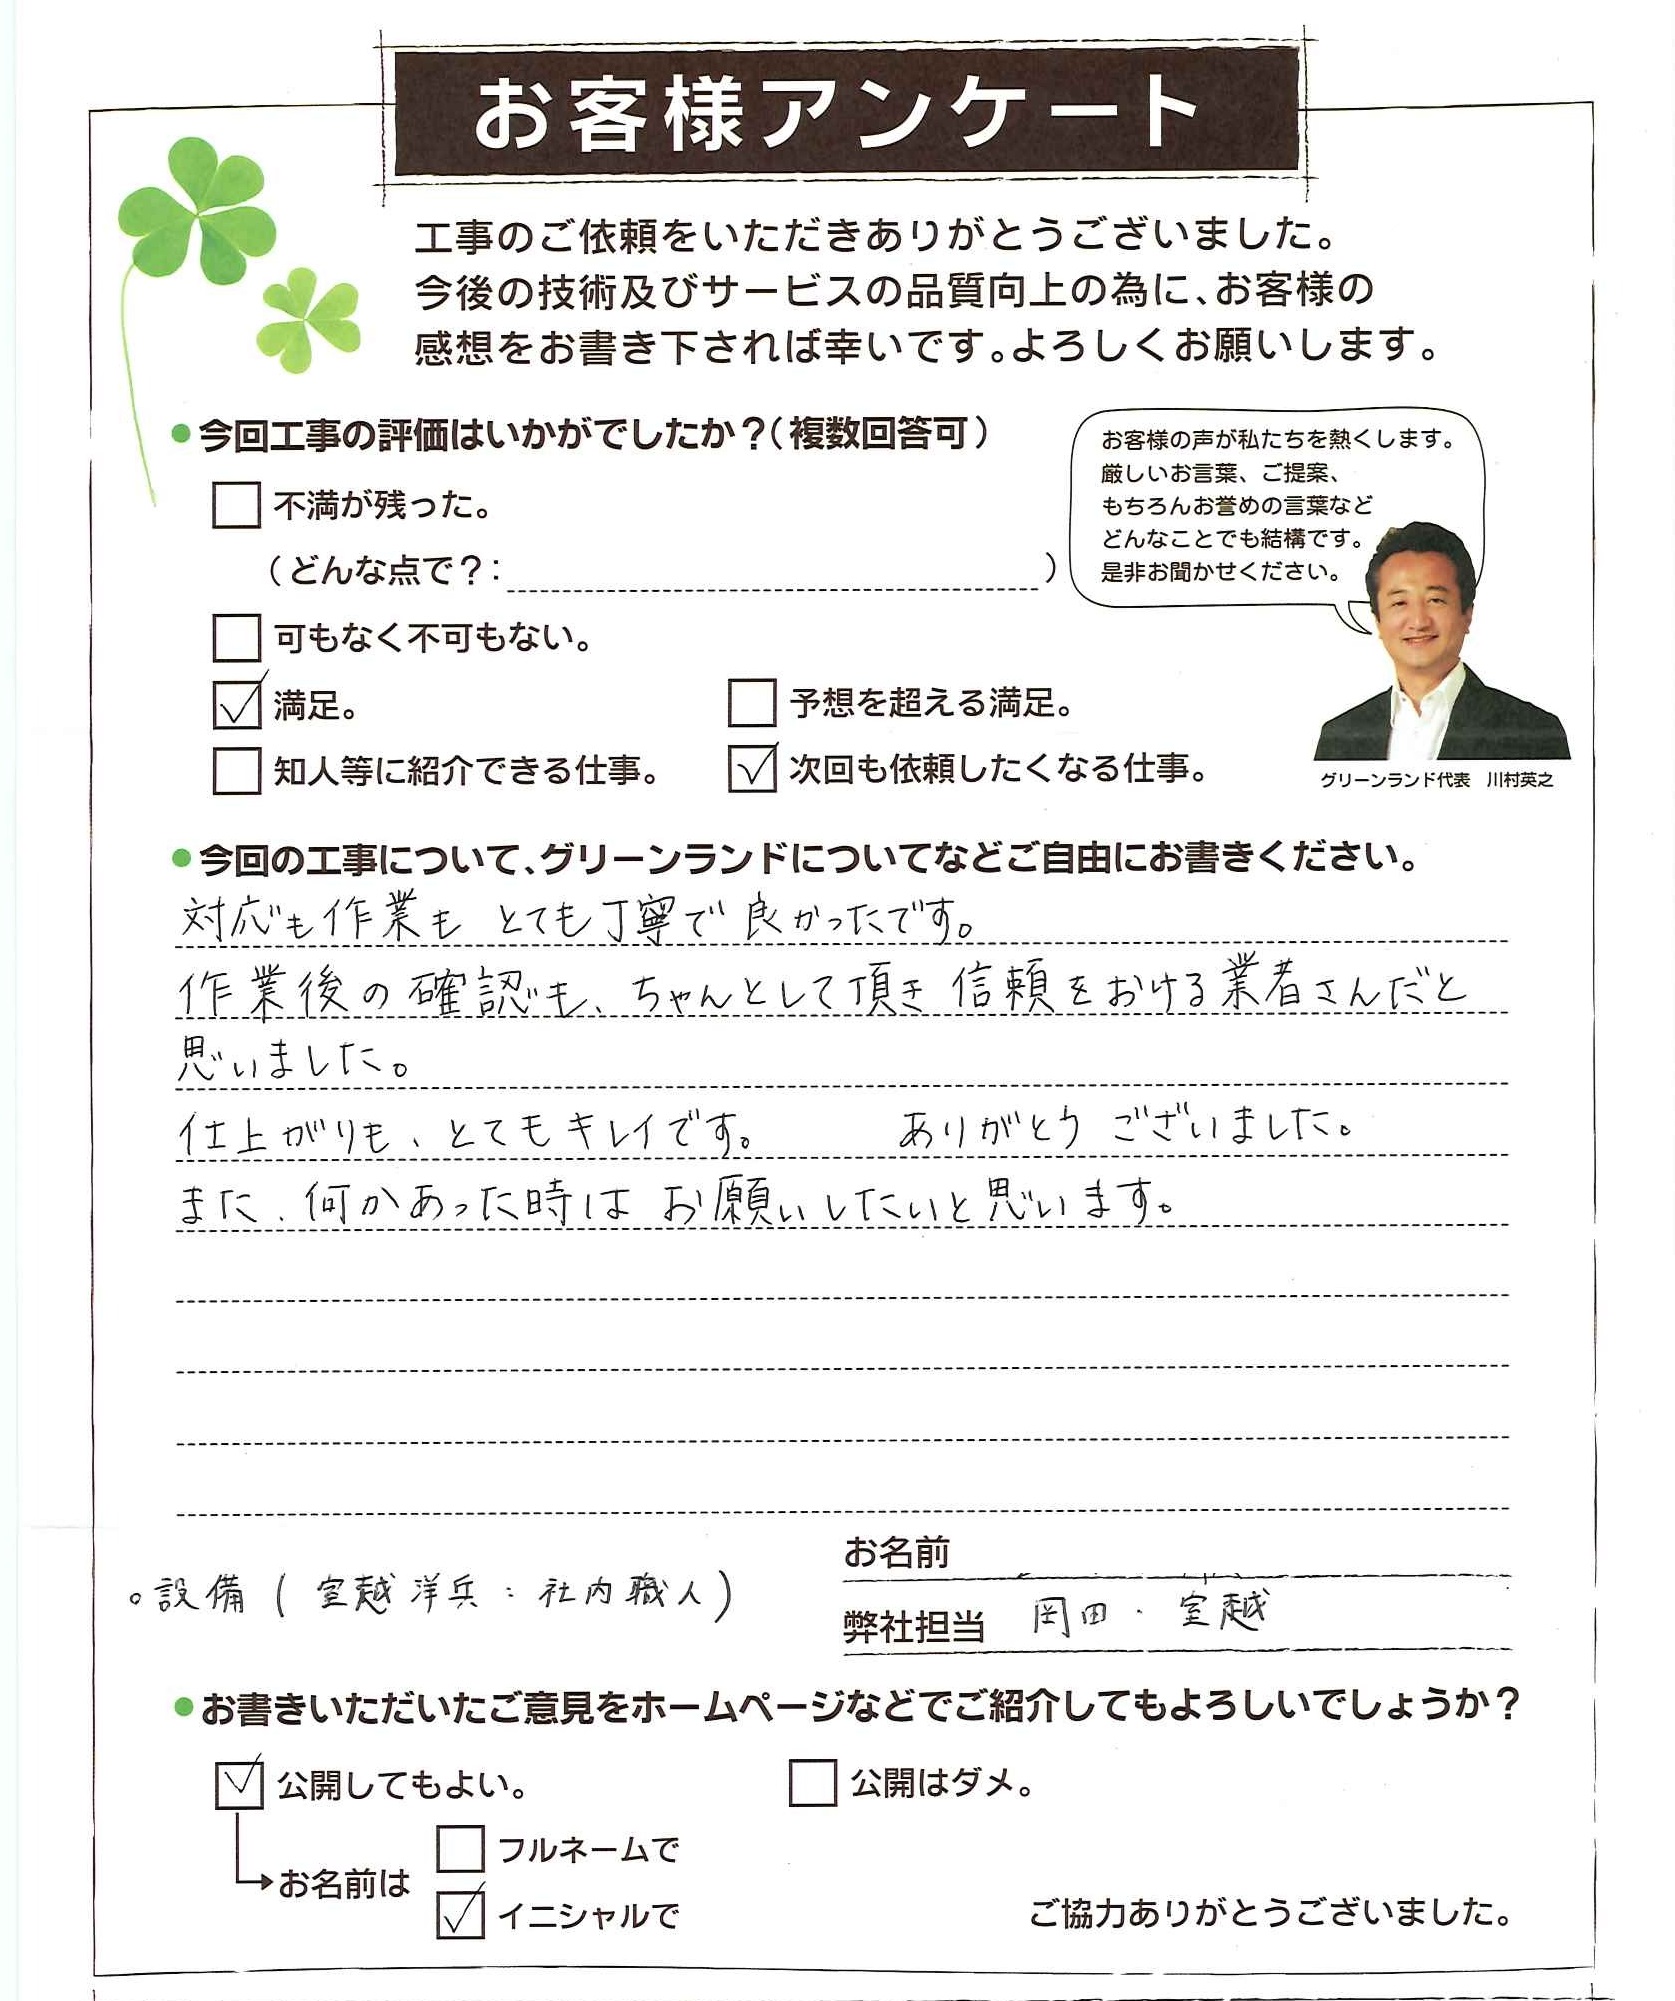 お客様アンケート
工事のご依頼をいただきありがとうございました。
今後の技術及びサービスの品質向上の為に、お客様の
感想をお書き下されば幸いです。よろしくお願いします。
●今回工事の評価はいかがでしたか？（複数回答可）
不満が残った。
（どんな点で？：　）
可もなく不可もない。
満足。
予想を超える満足。
知人等に紹介できる仕事。
次回も依頼したくなる仕事。
お客様の声が私たちを熱くします。
厳しいお言葉、ご提案、
もちろんお誉めの言葉など
どんなことでも結構です。
是非お聞かせください。
グリーンランド代表　川村英之
●今回の工事について、グリーンランドについてなどご自由にお書きください。
対応も作業も とても丁寧で 良かったです。
作業後の確認も、ちゃんとして頂き 信頼をおける業者さんだと
思いました。
仕上がりも、とてもキレイです。　ありがとう ございました。
また、何かあった時は お願いしたいと思います。
お名前
。設備（室越洋兵：社内職人）
弊社担当　岡田・室越
●お書きいただいたご意見をホームページなどでご紹介してもよろしいでしょうか？
公開してもよい。
公開はダメ。
お名前は
フルネームで
イニシャルで
ご協力ありがとうございました。